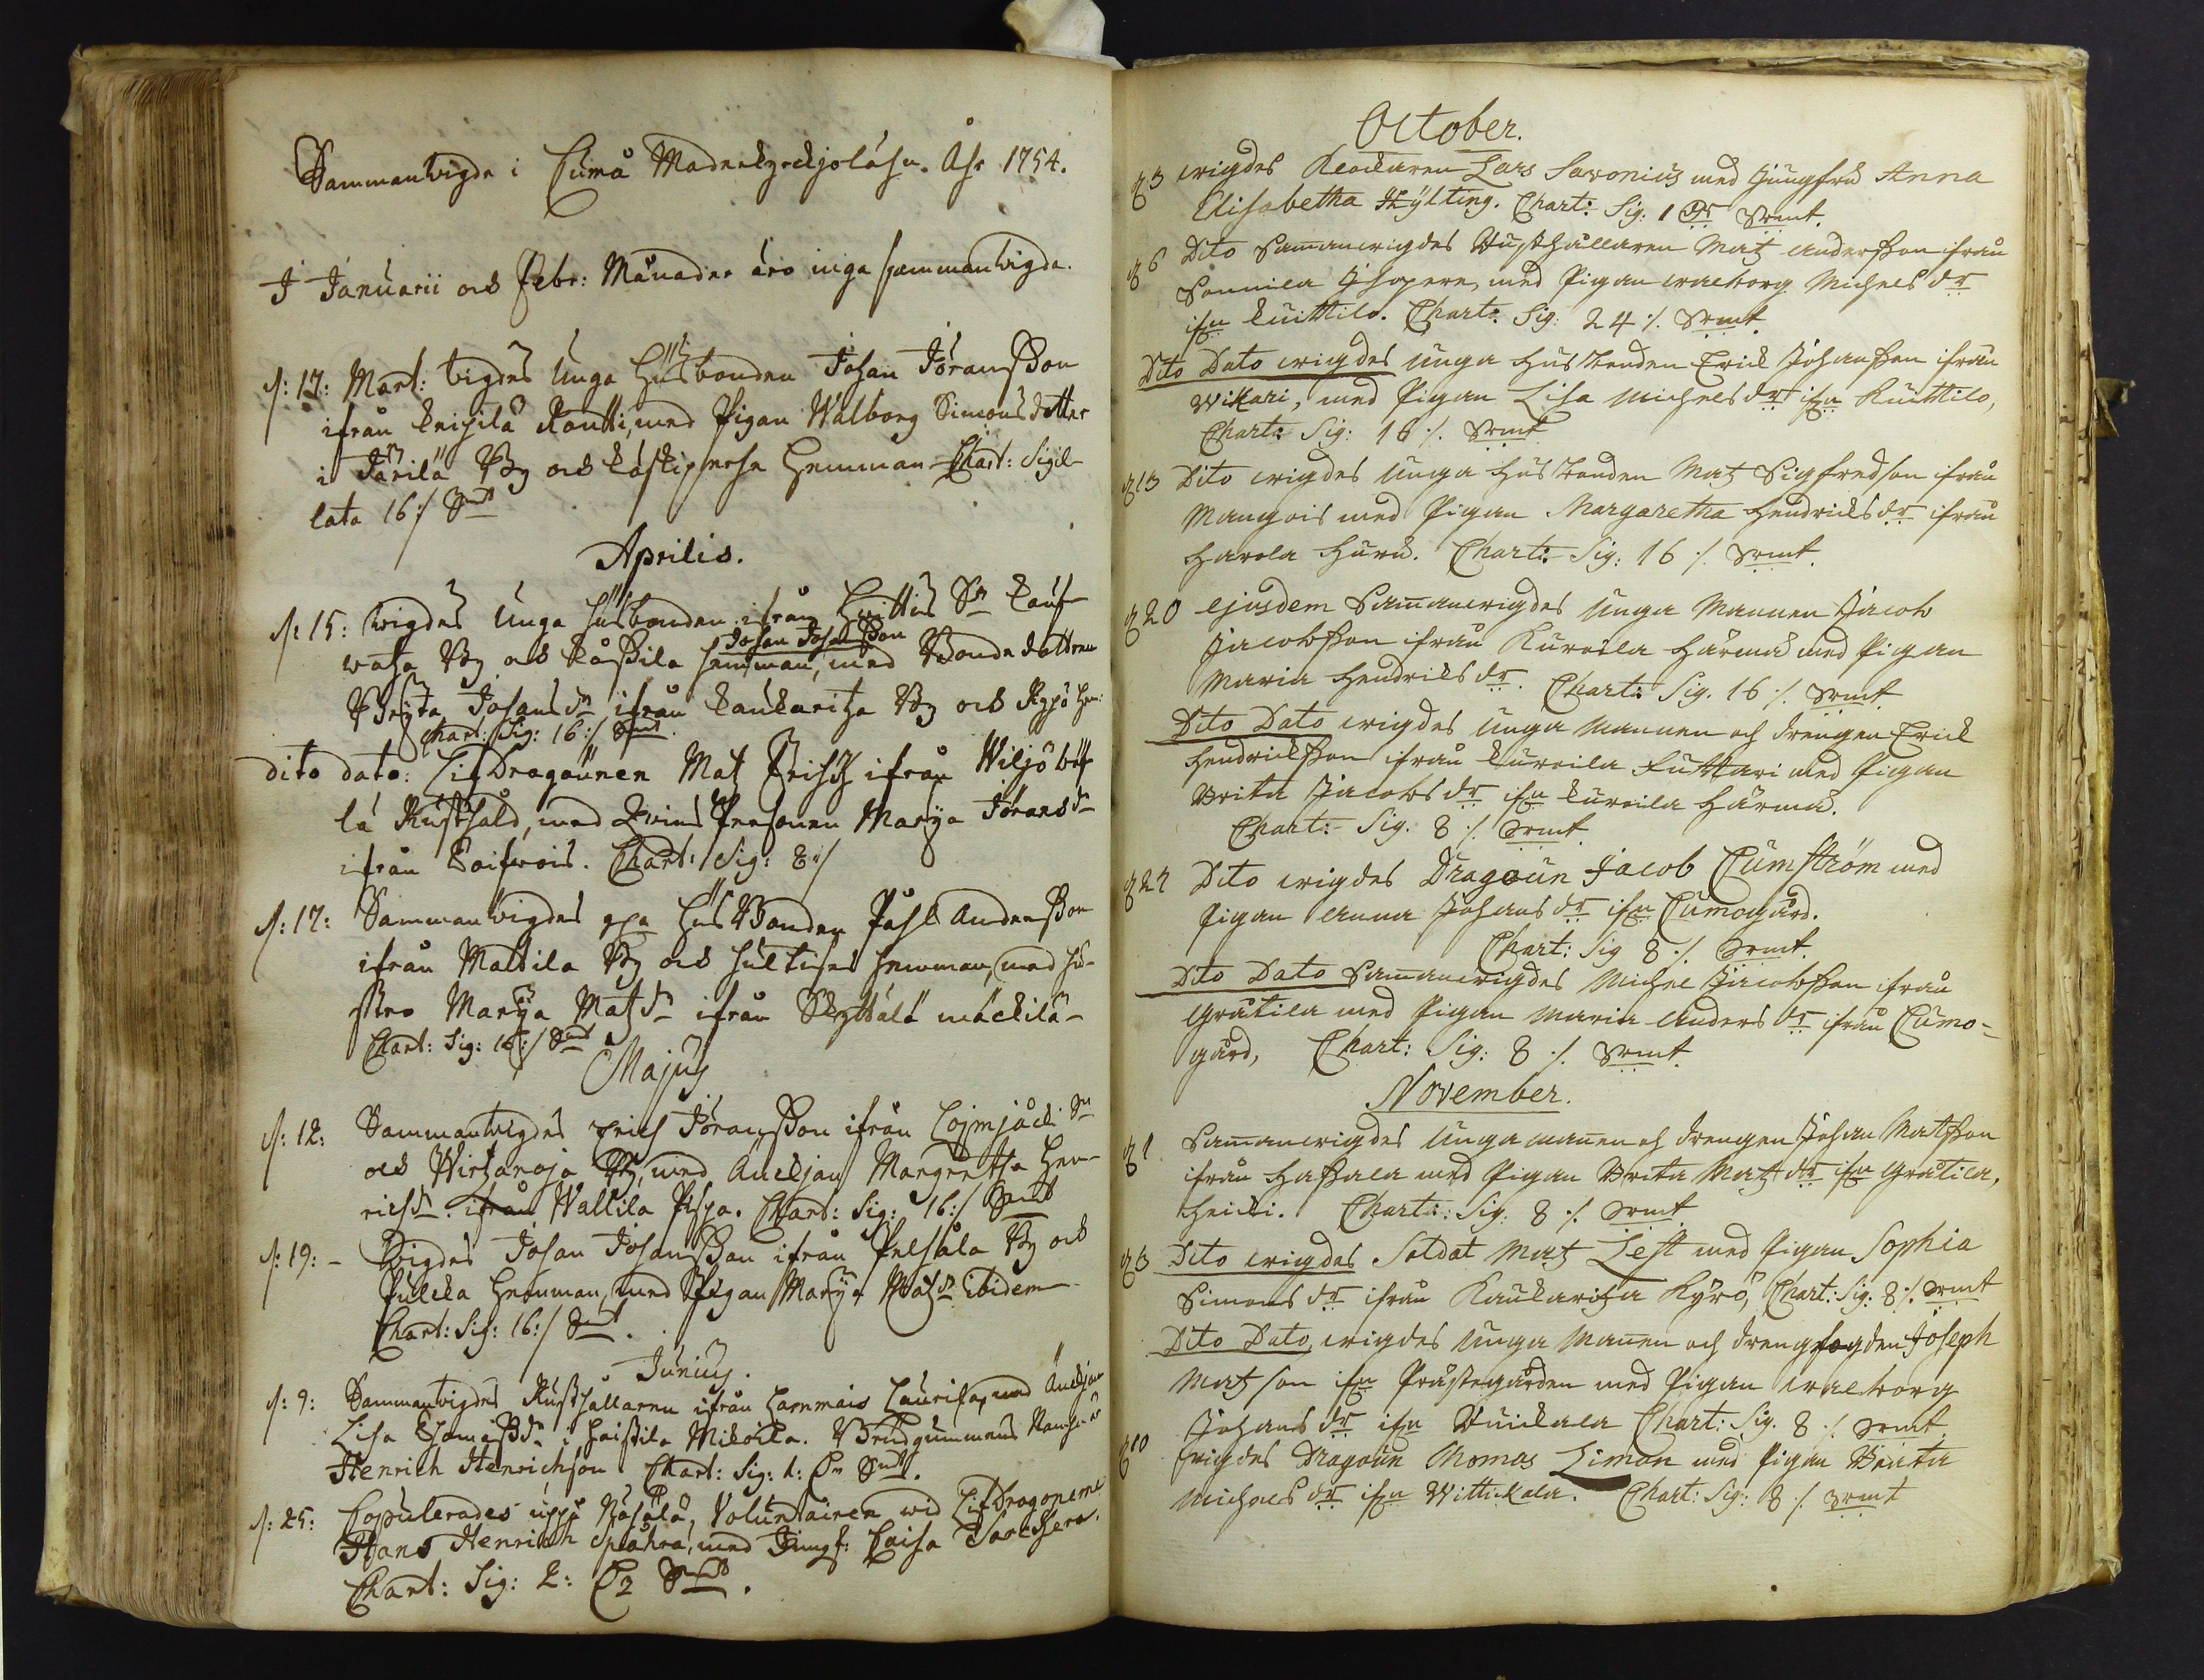 Sammanwigde i Cumå Moderkyrkjoläsn. Åhr 1754.
I Januarii och Febr: Månader äro inga sammanwigda.
d: 17: Mart: wigdes Unga Husbonden Johan Jöransson
ifrån Knisilä Kontti, med Pigan Walborg Simons dotter
i Järilä By och Käskipreße Hemman. Chart: Sigil-
lata 16:/ Smt
Aprilis.
d: 15: wigdes Unga Husbonden ifrån Huittis Sn Kauf-
Johan Johansson
watza By och Kåßila hemman, med Bonde dottren
Bryta Johansdr ifrån Kaukaritza By och Kyrö hem:
Chart: Sig: 16:/ Smt.
dito dato: LifDragounen Mat Frisk ifrån Wiljo
lä Rusthåld, med Qwins Personen Marya Jöransdr
ifrån Koifwois. Chart: Sig: 8:/
d: 17: Sammanwigdes Husbonden Påhl Andersson
ifrån Mattila By och Hultises hemman, med Hu-
stro Marya Matzdr ifrån Skyttälä mäckilä
Chart: Sig: 16:/ Smt
Majus
d: 12: Sammanwigdes Erich Jöransson ifrån Loimjocki Sn
och Wirtzanoja By, med Änckjan Margretha Hen-
richsdr ifrån Wallila Pispa. Chart: Sig: 16:/ Smt
d: 19: - Wigdes Johan Johansson ifrån Pelhåla By och
Pulcka Hemman, med Pigan Marya Matzdr ibidem
Chart: Sig: 16:/ Smt.
Junius.
d: 9: Sammanwigdes Rusthållaren ifrån Lammais Laurikas, med Änckjan
Lisa Thomasdr i Haistila Mikoila. Brudgummens Namn är
Henrich Henrichson Chart: Sig: 1: Dr Smt.
d: 25: Copulerades uppå Näsälä, Voluntairen wid LifDragonerne
Hans Henrich Spåhra, med Jungf: Caisa
Chart: Sig: 2: Dr Smt.
October.
d 3 wigdes Klockaren Lars Savonius med Jungfru Anna
Elisabetha Hylting. Chart: Sig. 1 Dr Srmt.
d 6 Dito Samanwigdes Rusthållaren Matz Andersson ifrån
Sonnila Isopere, med Pigan Walborg Michels dr
ifn Kuittilo. Chart: Sig: 24 ./. Srmt.
Dito Dato wigdes Unga Husbonden Erick Johansson ifrån
Wikari, med Pigan Lisa Michels dr ifn Kuittilo,
Chart: Sig: 16 ./. Srmt
d 13 Dito wigdes Unga Husbonden Matz Sigfredson ifrån
Mangois med Pigan Margaretha Hendricks dr ifrån
Harola Huru. Chart: Sig: 16 ./. Srmt.
d 20 ejusdem Samanwigdes Unga Mannen Jacob
Jacobsson ifrån Kuroila Härmä med Pigan
Maria Hendriks dr. Chart: Sig. 16 ./. Srmt.
Dito Dato wigdes Unga Mannen och drengen Erick
Hendricksson ifrån Kuroila Futtari med Pigan
Brita Jacobs dr ifn Kuroila Härmä.
Chart: Sig. 8 ./. Srmt
d 27 Dito wigdes Dragoun Jacob Cumström med
Pigan Anna Johans dr ifn Cumogård.
Chart: Sig 8 ./. Srmt.
Dito Dato Samanwigdes Michel Jacobsson ifrån
Gråtila med Pigan Maria Anders dr ifrån Cumo-
gård, Chart: Sig: 8 ./. Srmt
November.
d 1 Samanwigdes Unga manen och drengen Johan Matsson
ifrån Haßala med Pigan Brita Matz dr ifn Gråtila,
Heicki. Chart: Sig. 8 ./. Srmt
d 3 Dito wigdes Soldat Matz Lest med Pigan Sophia
Simons dr ifrån Kaukaritza Kyrö, Chart: Sig: 8 ./. Srmt
Dito Dato, wigdes Unga Manen och drengfogden Joseph
Matzson ifn Prästegården med Pigan Walborg
Johans dr ifn Vuickala Chart: Sig. 8 ./. Srmt
d 10 wigdes Dragoun Thomas Liman med Pigan Beata
Michels dr ifn Wittickala. Chart: Sig: 8 ./. Srmt